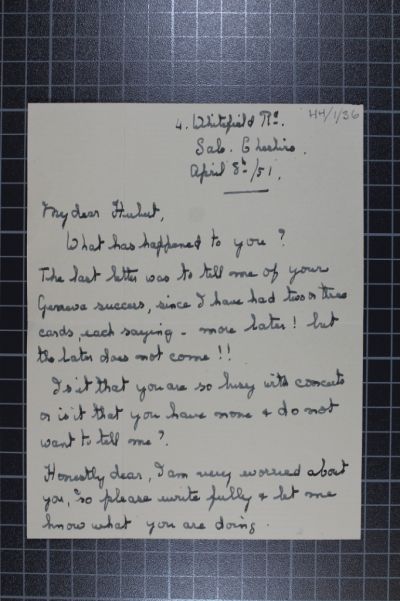 H4/1/36
4. Whitefield Rd.
Sale. Cheshire.
April 8th/51.
My dear Hubert,
What has happened to you?
The last letter was to tell me of your
Geneva success, since I have had two or three
cards, each saying - more later! but
the later does not come!!
Is it that you are so busy with concerts
or is it that you have none & do not
want to tell me?
Honestly dear, I am very worried about
you, so please write fully & let me
know what you are doing.